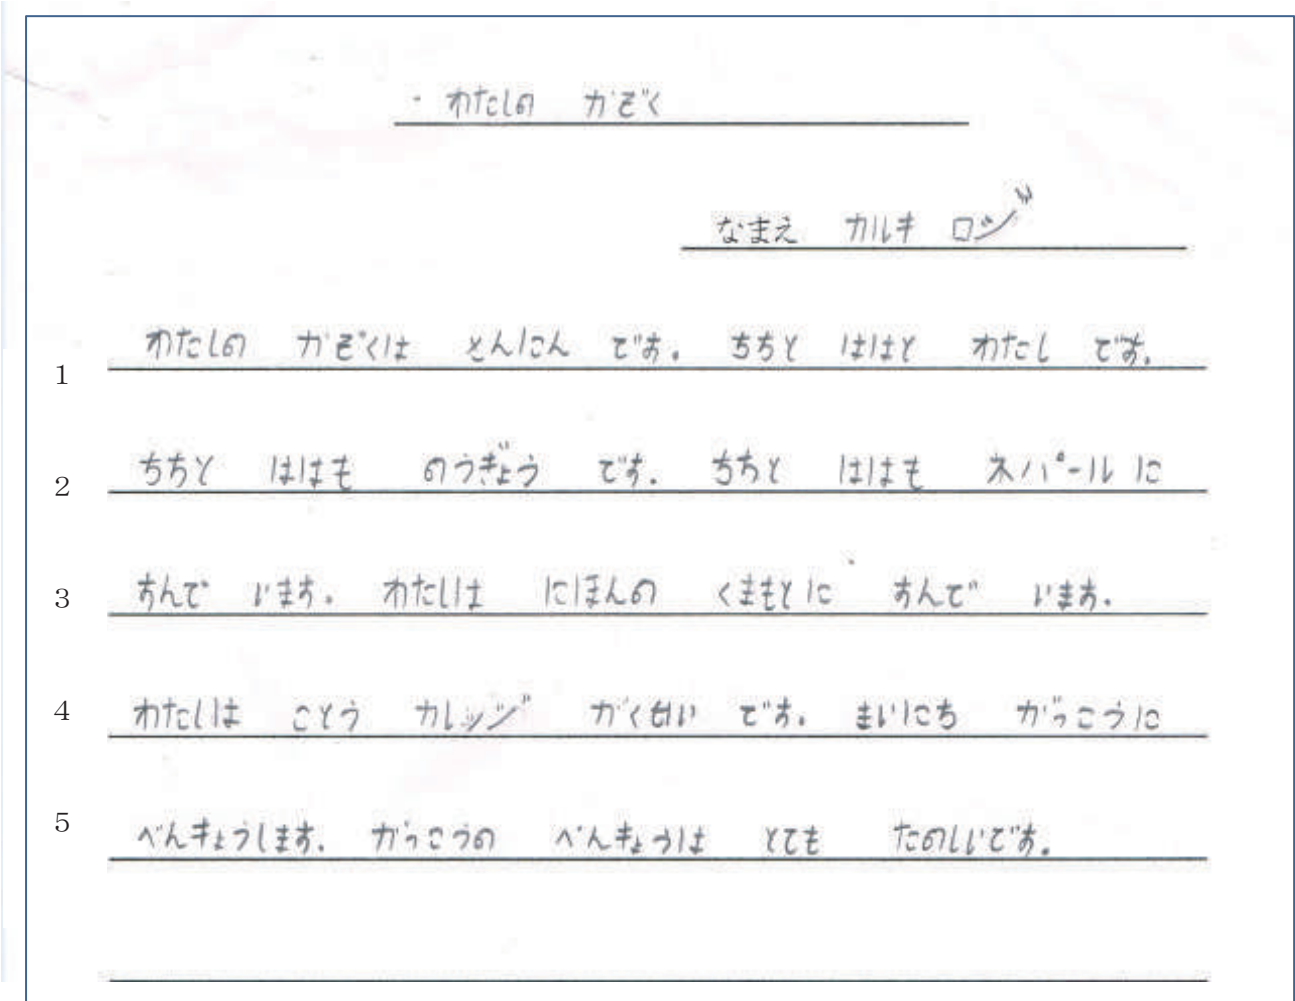 わたしの かぞく
なまえ カルキ ロジ
1 わたしの かぞくは とんにん です。 ちちと ははと わたし です。
2 ちちと ははも のうぎょう です。 ちちと ははも ネパールに
3 すんで います。 わたしは にほんの くまもとに すんで います。
4 わたしは ことう カレッジ がくせい です。 まいにち がっこうに
5 べんきょうします。 がっこうの べんきょうは とても たのしいです。